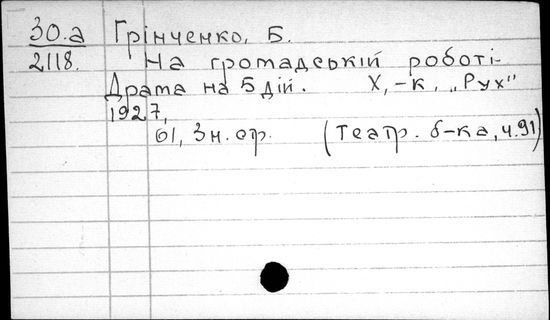 30.а Грінченко, Б.
2118. На громадській роботі.
Драма на 5 дій. Х,-к, „Рух"
1927,
61, 3 н. ст. (Театр. б-ка, ч. 91)